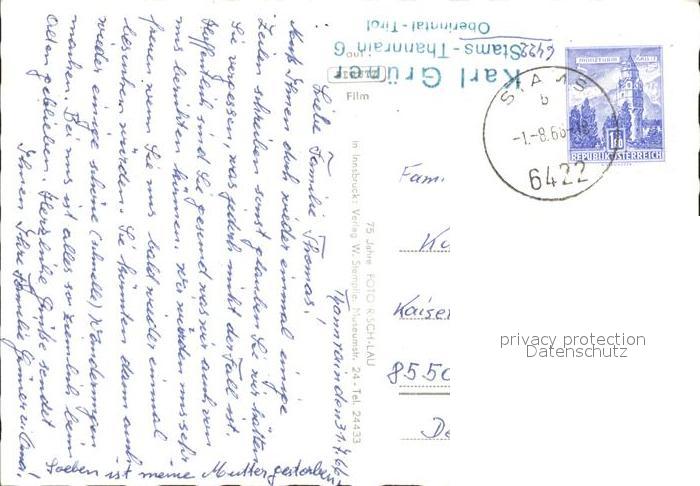 Thannrain den 31.7.66
Liebe Familie Thomas!
Muß Ihnen doch wieder einmal einige
Zeilen schreiben sonst glauben Sie wir hätten
Sie vergessen, was jedoch nicht der Fall ist.
Hoffentlich sind Sie gesund was wir auch von
uns berichten können. Wir würden uns sehr
freuen wenn Sie uns bald wieder einmal
besuchen würden. Sie könnten dann auch
wieder einige schöne (schnelle) Wanderungen
machen. Bei uns ist alles so ziemlich beim
Alten geblieben. Herzliche Grüße sendet
Ihnen Ihre Familie Grüner u. Oma!
Soeben ist meine Mutter gestorben!
Karl Grüner
6422 Stams - Thannrain 6
Oberinntal - Tirol
Film
75 Jahre FOTO RISCH-LAU
in Innsbruck: Verlag W. Stempfle, Museumstr. 24 - Tel. 24433
STAMS
b
-1.-8.66-18
6422
MÜNZTURM HALL I. T.
1.50
REPUBLIK ÖSTERREICH
Fam.
Kaiser
8550
privacy protection
Datenschutz